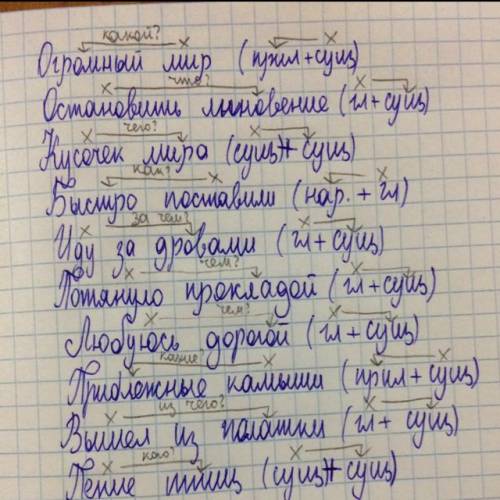 какой?
Огромный мир (прил+сущ)
что?
Остановишь мгновение (гл+сущ)
чего?
Кусочек мира (сущ+сущ)
как?
Быстро поставили (нар. + гл)
за чем?
Иду за дровами (гл+сущ)
чем?
Потянуло прохладой (гл+сущ)
чем?
Любуюсь дорогой (гл+сущ)
какие?
Прибрежные камыши (прил+сущ)
из чего?
Вышел из палатки (гл+ сущ)
кого?
Пение птиц (сущ+сущ)